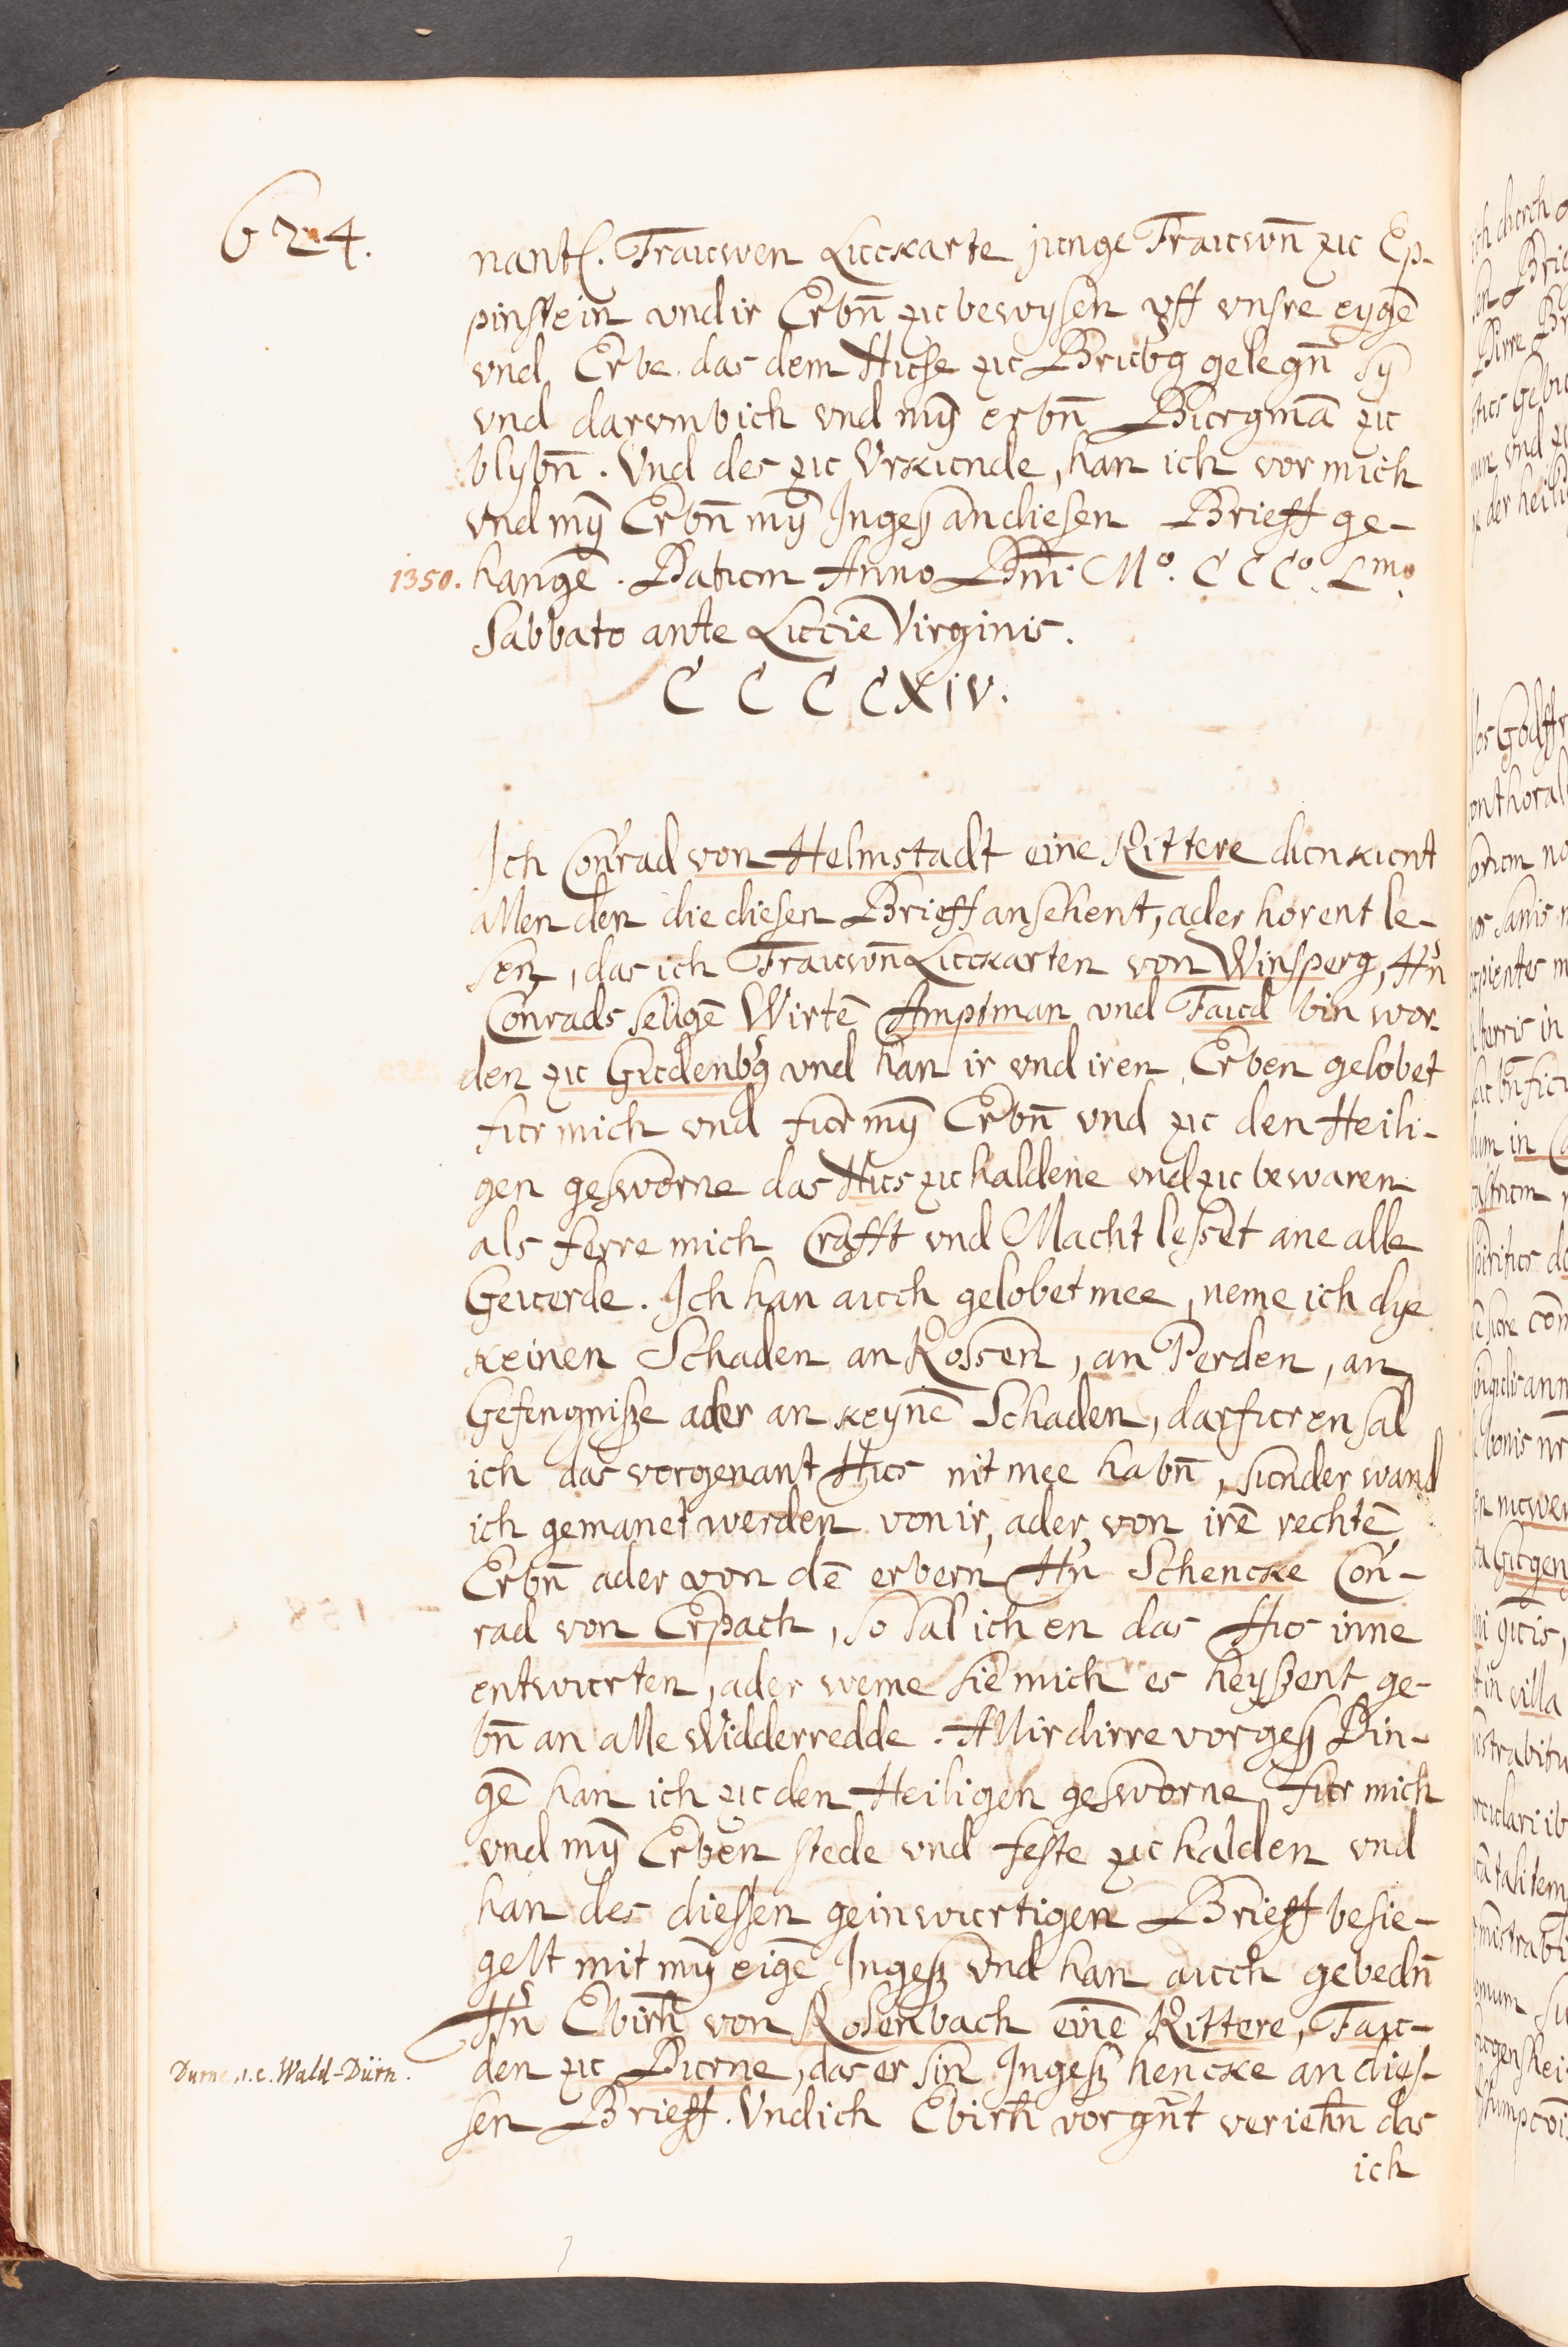 624.
nantſ. Frauwen Luckarte junge Frauwn̄ zu Ep-
pinstein vnd ir Erbn̄ zu bewysen vff vnsre eygē
vnd Erbe das dem Huse zu Brubg gelegn̄ sy
vnd darvmb ich vnd mȳ erbn̄ Burgmā zu
blybn̄. Vnd des zu Vrkunde, han ich vor mich
vnd mȳ Erbn̄ mȳ Ingeß an diesen Brieff ge-
1350. hangē. Datum Anno Dn̄i Mº. CCCº. Lmo.
Sabbato ante Lucie Virginis.
CCCCXIV.
Ich Conrad von Helmstadt eine Rittere dun kunt
allen den die diesen Brieff ansehent, ader horent le-
sen, das ich Frauwn̄ Luckarten von Winsperg, Hn
Conrads seligē Wirtē Amptman vnd Faud bin wor-
den zu Gudenbg vnd han ir vnd iren Erben gelobet
fur mich vnd fur mȳ Erbn̄ vnd zu den Heili-
gen gesworne das Hus zu haldene vnd zu bewaren
als ferre mich Crafft vnd Macht lesset ane alle
Geuerde. Ich han auch gelobet mee, neme ich dye
keinen Schaden an Rossen, an Perden, an
Gefengniße ader an keynē Schaden, darfur en sal
ich das vorgenant Hus nit mee habn̄, sunder wand
ich gemanet werden von ir, ader von irē rechtē
Erbn̄ ader von dē erbern Hn Schencke Con-
rad von Erpach, so sal ich en das Hus inne
entwurten, ader weme sie mich es heyßent ge-
bn̄ an alle Widderredde. Allir dirre vorgeß Din-
gē han ich zu den Heiligen gesworne fur mich
vnd mȳ Erben stede vnd feste zu halden vnd
han des diessen geinwurtigen Brieff besie-
gelt mit mȳ eigē Ingeß vnd han auch gebedn̄
Hn Ebirh von Rosenbach einē Rittere, Fau-
Durne, i.e. Wald-Dürn. den zu Durne, das er sin Ingeß hencke an dies-
sen Brieff. Vnd ich Ebirh vorgnt veriehn̄ das
ich